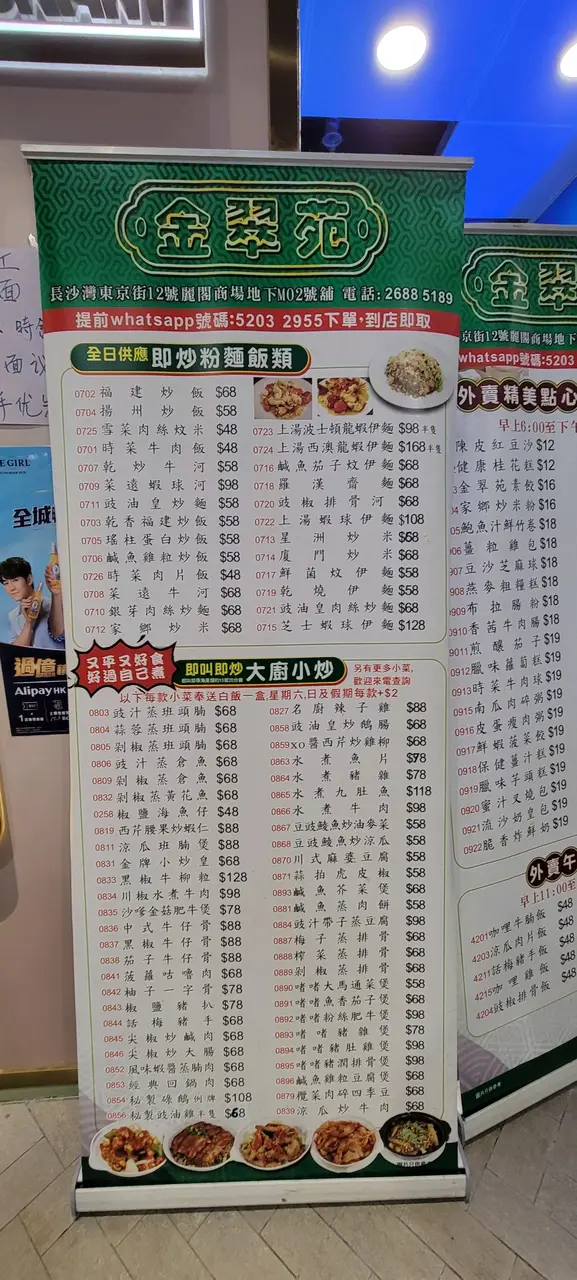 金翠苑
長沙灣東京街12號麗閣商場地下M02號舖 電話: 2688 5189
提前whatsapp號碼:5203 2955下單,到店即取
全日供應 即炒粉麵飯類
0702 福建炒飯 $68
0704 揚州炒飯 $58
0725 雪菜肉絲炆米 $48
0701 時菜牛肉飯 $48
0707 乾炒牛河 $58
0709 菜遠蝦球河 $98
0711 豉油皇炒麵 $58
0703 乾香福建炒飯 $58
0705 瑤柱蛋白炒飯 $58
0706 鹹魚雞粒炒飯 $58
0726 時菜肉片飯 $48
0708 菜遠牛河 $68
0710 銀芽肉絲炒麵 $68
0712 家鄉炒米 $68
0723 上湯波士頓龍蝦伊麵 $98半隻
0724 上湯西澳龍蝦伊麵 $168半隻
0716 鹹魚茄子炆伊麵 $68
0718 羅漢齋麵 $68
0720 豉椒排骨河 $68
0722 上湯蝦球伊麵 $108
0713 星洲炒米 $68
0714 廈門炒米 $68
0717 鮮菌炆伊麵 $58
0719 乾燒伊麵 $58
0721 豉油皇肉絲炒麵 $68
0715 芝士蝦球伊麵 $128
又平又好食
好過自己煮
即叫即炒 大廚小炒
另有更多小菜,
歡迎來電查詢
以下每款小菜奉送白飯一盒,星期六,日及假期每款+$2
0803 豉汁蒸班頭腩 $68
0804 蒜蓉蒸班頭腩 $68
0805 剁椒蒸班頭腩 $68
0806 豉汁蒸倉魚 $68
0809 剁椒蒸倉魚 $68
0832 剁椒蒸黃花魚 $68
0258 椒鹽海魚仔 $48
0819 西芹腰果炒蝦仁 $88
0811 涼瓜班腩煲 $88
0831 金牌小炒皇 $68
0833 黑椒牛柳粒 $128
0834 川椒水煮牛肉 $98
0835 沙嗲金菇肥牛煲 $78
0836 中式牛仔骨 $88
0837 黑椒牛仔骨 $88
0838 茄子牛仔骨 $88
0841 菠蘿咕嚕肉 $68
0842 柚子一字骨 $78
0843 椒鹽豬扒 $78
0844 話梅豬手 $68
0845 尖椒炒鹹肉 $68
0846 尖椒炒大腸 $68
0852 風味蝦醬蒸腩肉 $68
0853 經典回鍋肉 $68
0854 秘製碌鵝例牌 $108
0856 秘製豉油雞半隻 $68
0827 名廚辣子雞 $88
0858 豉油皇炒鵝腸 $68
0859 XO醬西芹炒雞柳 $68
0863 水煮魚片 $78
0864 水煮豬雜 $78
0865 水煮九肚魚 $118
0866 水煮牛肉 $98
0867 豆豉鯪魚炒油麥菜 $58
0868 豆豉鯪魚炒涼瓜 $58
0870 川式麻婆豆腐 $58
0871 蒜拍虎皮椒 $58
0893 鹹魚芥菜煲 $68
0881 鹹魚蒸肉餅 $58
0884 豉汁帶子蒸豆腐 $98
0887 梅子蒸排骨 $68
0888 榨菜蒸排骨 $68
0889 剁椒蒸排骨 $68
0890 啫啫大馬通菜煲 $58
0891 啫啫魚香茄子煲 $68
0892 啫啫粉絲肥牛煲 $98
0893 啫啫豬雜煲 $78
0894 啫啫豬肚雞煲 $98
0895 啫啫豬潤排骨煲 $98
0896 鹹魚雞粒豆腐煲 $68
0879 欖菜肉碎四季豆 $68
0839 涼瓜炒牛肉 $68
金翠
京街12號麗閣商場地下
whatsapp號碼:520
外賣精美點心
早上6:00至下午
陳皮紅豆沙 $12
健康桂花糕 $12
金翠苑素餃 $16
家鄉炒米粉 $16
905 鮑魚汁鮮竹卷 $18
906 薑粒雞包 $18
907 豆沙芝麻球 $18
908 燕麥粗糧糕 $18
0909 布拉腸粉 $18
0910 香茜牛肉腸 $18
0911 煎釀茄子 $19
0912 臘味蘿蔔糕 $19
0913 時菜牛肉球 $19
0915 南瓜肉碎粥 $19
0916 皮蛋瘦肉粥 $19
0917 鮮蝦菠菜餃 $19
0918 保健薑汁糕 $19
0919 臘味芋頭糕 $19
0920 蜜汁叉燒包 $19
0921 流沙奶皇包 $19
0922 脆香炸鮮奶 $19
外賣午
早上11:00至
4201 咖哩牛腩飯 $48
4203 涼瓜肉片飯 $48
4211 話梅豬手飯 $48
4215 咖哩雞飯 $48
4204 豉椒排骨飯 $48
面
時
面議
GIRL
全城
過億
Alipay HK